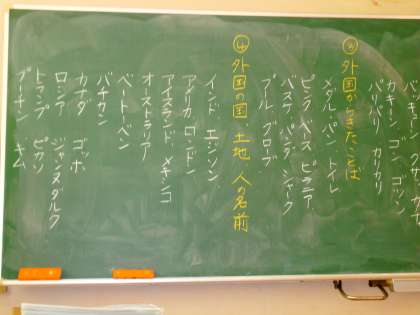 カキーン ゴン ゴツン
パリパリ カリカリ
③ 外国からきたことば
メダル パン トイレ
ピンク ベース ピラニア
グローブ
④ 外国の国、土地、人の名前
インド エジソン
アメリカ ロンドン
アイスランド メキシコ
オーストラリア
ベートーベン
バチカン
カナダ ゴッホ
ロシア ジャンヌダルク
トランプ ピカソ
プーチン キム